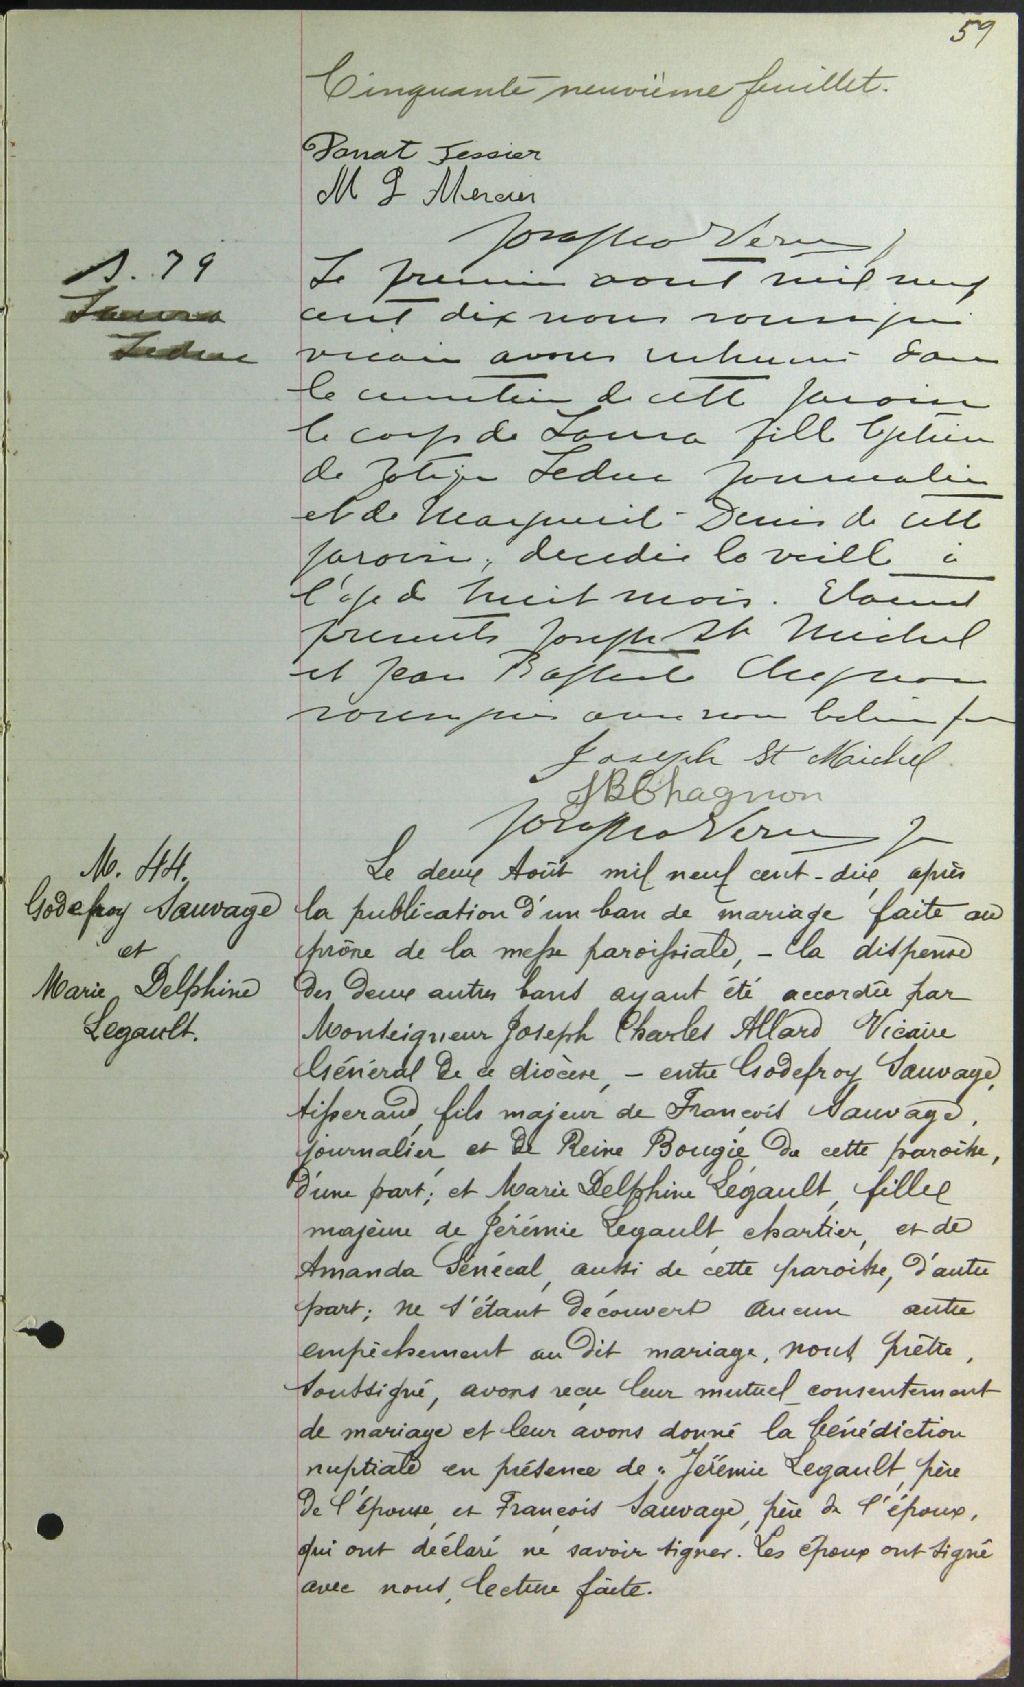 59
Cinquante neuvième feuillet.
Donat Tessier
M L Mercier
S. 79
Laura
Leduc
Le premier aout mil neuf
cent dix nous soussigné
vicaire avons inhumé dans
le cimetière de cette paroisse
le corps de Laura fille légitime
de Zotique Leduc journalier
et de Marguerite Denis de cette
paroisse, decedée la veille à
l'age de huit mois. Etaient
presents Joseph St Michel
et Jean Baptiste Chagnon
soussignés avec nous lecture fte
Joseph St Michel
JB Chagnon
M. 44.
Godefroy Sauvage
et
Marie Delphine
Legault.
Le deux Août mil neuf cent-dix, après
la publication d'un ban de mariage faite au
prône de la messe paroissiale, - la dispense
des deux autres bans ayant été accordée par
Monseigneur Joseph Charles Allard Vicaire
Général de ce diocèse, - entre Godefroy Sauvage,
tisserand, fils majeur de François Sauvage,
journalier et de Reine Bougie de cette paroisse,
d'une part; et Marie Delphine Legault, fille
majeure de Jérémie Legault, chartier, et de
Amanda Sénécal, aussi de cette paroisse, d'autre
part; ne s'étant découvert aucun autre
empêchement au dit mariage, nous, prêtre,
soussigné, avons reçu leur mutuel consentement
de mariage et leur avons donné la bénédiction
nuptiale en présence de Jérémie Legault, père
de l'épouse, et François Sauvage, père de l'époux,
qui ont déclaré ne savoir signer. Les époux ont signé
avec nous, lecture faite.